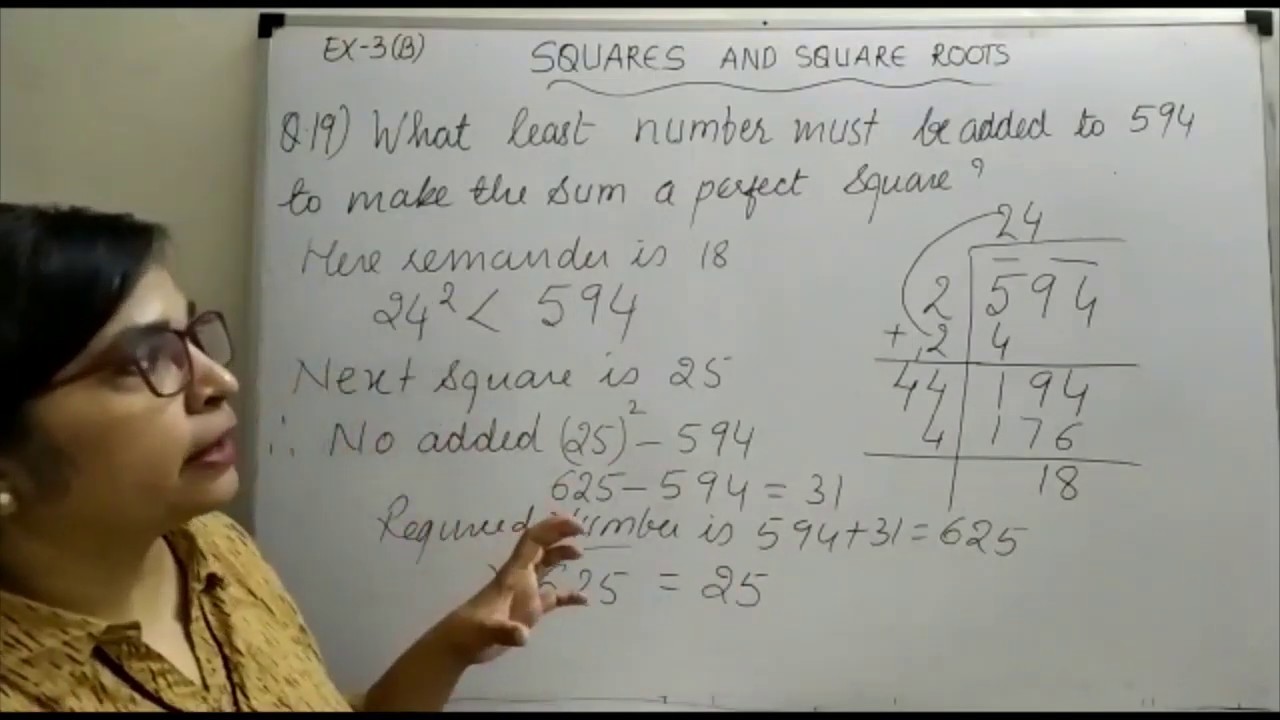 EX-3(B)
SQUARES AND SQUARE ROOTS
Q.19) What least number must be added to 594
to make the sum a perfect square?
Here remander is 18
24² < 594
Next square is 25
∴ No added (25)² - 594
625 - 594 = 31
Required Number is 594+31=625
625 = 25
24
2 594
+2 4
44 194
4 176
18